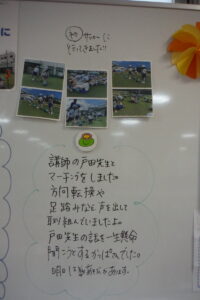 に
サッカーに
行ってきました!!
講師の戸田先生と
マーチングをしました。
方向転換や
足踏みなど、声を出して
取り組んでいましたよ。
戸田先生の話を一生懸命
聞こうとするかっぱさんでした。
明日も